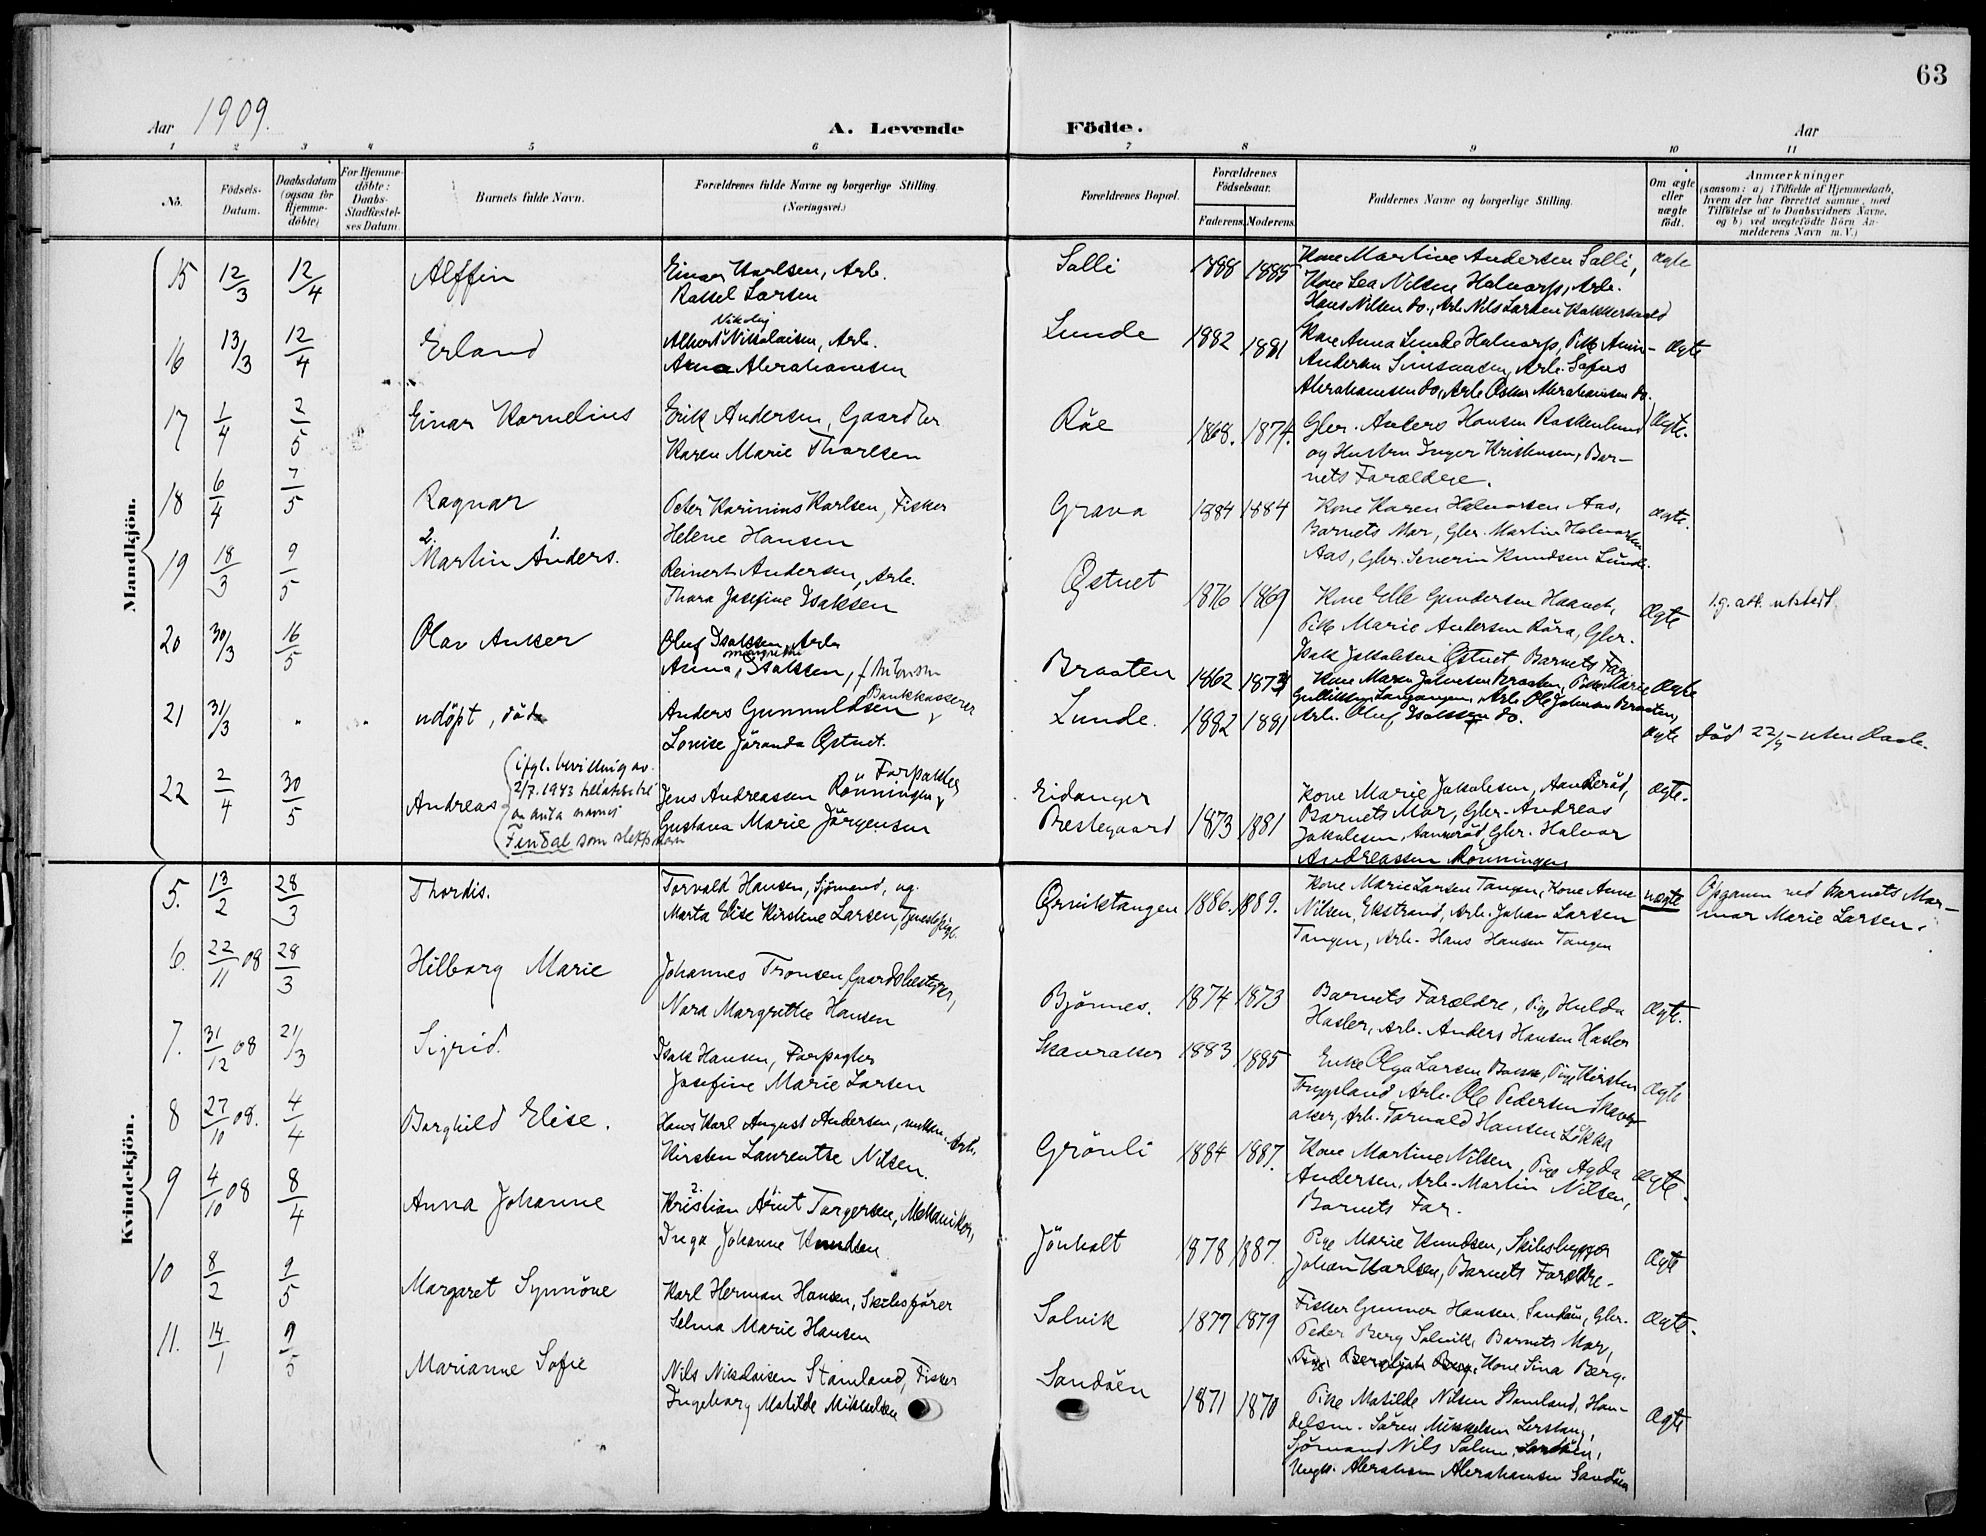 63
Aar 1909.
A. Levende Födte.
Aar
1 2 3 4 5 6 7 8 9 10 11
No.
Födsels-Datum.
Daabsdatum (ogsaa for Hjemme-döbte)
For Hjemme-döbte: Daabs-Stadfæstel-ses Datum
Barnets fulde Navn.
Forældrenes fulde Navne og borgerlige Stilling.
(Næringsvei.)
Forældrenes Bopæl.
Forældrenes Födselsaar.
Faderens. Moderens.
Faddernes Navne og borgerlige Stilling.
Om ægte eller uægte födt.
Anmærkninger
(saasom: a) i Tilfælde af Hjemmedaab,
hvem der har forrettet samme, med
Tilföielse af to Daabsvidners Navne,
og b) ved uægtefödte Börn An-
melderens Navn m. V.)
Mandkjön.
15 12/3 12/4 Alffin
Einar Karlsen, Arb.
Rakel Larsen
Salli 1888 1885
Kone Martine Andersen Salli,
Kone Lea Nilsen Halvarp, Arb.
Hans Nilsen do., Arb. Nils Larsen
ægte
16 13/3 12/4 Erland
Nikolaj
Albert Nikolaisen, Arb.
Anna Abrahamsen
Lunde 1882 1881
Kone Anna Lunde Halvarp, Pike
Andersen Arb.
Abrahamsen do., Arb. Oskar Abrahamsen do.
Ægte
17 1/4 2/5 Einar Kornelius
Erik Andersen, Gaardbr
Karen Marie Thorlsen
Röe 1868. 1874.
Gbr. Anders Hansen
og Hustru Inger Kristensen, Bar-
nets Forældre.
Ægte.
18 6/4 7/5 Ragnar
Peter Karinius Karlsen, Fisker
Helene Hansen
Grava 1884 1884
Kone Karen Halvorsen Aas,
Barnets Mor, Gbr. Martin Halvorsen
Aas, Gbr. Severin Knudsen Lunde.
ægte.
19 18/3 9/5
2. 1.
Martin Anders.
Reinert Andersen, Arb.
Thora Josefine Isaksen
Östvet 1876 1869
Kone Elle Gundersen
Pike Marie Andersen Röra, Gbr.
Isak Jakobsen Östvet, Barnets Far
Ægte
l.g. att. utstedt.
20 30/3 16/5 Olav Anker
Oluf Isaksen, Arb
Margrethe
Anna Isaksen,
Braaten 1862 1873
Kone Maren Johnsen Braaten, Pike Marie
Gulliksen Langangen, Arb. Ole Johnsen Braaten,
Arb. Oluf Isaksen do.
Ægte
21 31/3 " " udöpt, död
Bankkasserer
Anders Gunnuldsen
Lovise Jöranda Östvet.
Lunde. 1882 1881
ægte
Död 22/4 - uten Daab.
22 2/4 30/5 Andreas
ifgl. bevilling av
2/7. 1943 tillatelse til
an anta navnet
Findal som slektsnavn
Forpakter
Jens Andreassen Rönningen,
Gustava Marie Jörgensen
Eidanger
Prestegaard 1873 1881
Kone Marie Jakobsen, Aanneröd,
Barnets Mor, Gbr. Andreas
Jakobsen, Aanneröd, Gbr. Halvor
Andreassen Rönningen
ægte.
Kvindekjön.
5. 13/2 28/3 Thordis.
Torvald Hansen, Sjömand, og
Marta Elise Kirstine Larsen, Tjenestepige.
Örviktangen 1886. 1889.
Kone Marie Larsen Tangen, Kone Anne
Nilsen, Ekstrand, Arb. Johan Larsen
Tangen, Arb. Hans Hansen Tangen
uægte
Opgaven ved Barnets Mor-
mor Marie Larsen.
6. 22/11 08 28/3 Hilborg Marie
Johannes Tronsen Gaardsbestyrer,
Nora Margrethe Hansen
Bjönnes. 1874 1873
Barnets Forældre, Pige Hulda
Hasler, Arb. Anders Hansen Hasler
Ægte.
7. 31/12 08 21/3 Sigrid.
Isak Hansen, Forpagter
Josefine Marie Larsen
Skavraker 1883 1885
Enke Olga Larsen Bakke, Pige Kirsten
Tryggsland, Arb. Ole Pedersen Skavr-
aker, Arb. Torvald Hansen Lökka
Ægte
8 27/10 08. 4/4 Borghild Elise.
Hans Karl August Andersen, Arb.
Kirsten Laurentse Nilsen.
Grönli 1884 1887.
Kone Martine Nilsen, Pige Agda
Andersen, Arb. Martin Nilsen,
Barnets Far.
Ægte.
9 4/10 08 8/4 Anna Johanne
2. 1
Kristian Arnt Torgersen, Mekaniker,
Inga Johanne Knudsen
Jönholt 1878 1887.
Pige Marie Knudsen, Skibsbygger
Johan Karlsen, Barnets Forældre.
Ægte
10 8/2 9/5 Margaret Synnöve
Karl Herman Hansen, Skibsförer
Selma Marie Hansen
Solvik 1877 1879
Fisker Gunner Hansen Sandöen, Gbr.
Peder Berg Solvik, Barnets Mor,
Pige Bergljot Berg, Kone Sina Berg.
Ægte.
11. 14/1 9/5 Marianne Sofie
Nils Nikolaisen Stamland, Fisker
Ingeborg Matilde Mikkelsen
Sandöen 1871 1870
Pike Matilde Nilsen Stamland, Han-
delsm. Sören Mikkelsen Lerstang,
Sjömand Nils Salum, Sandöen,
Ungk. Abraham Abrahamsen Sandöen
Ægte